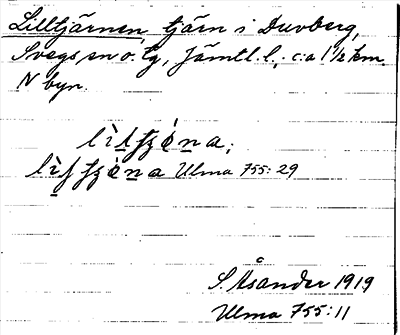 Lilltjärnen, tjärn i Duvberg,
Svegs sn o. tg, Jämtl. l., c:a 1 1/2 km.
N byn.
Ulma 755:29
S. Åsander 1919
Ulma 755:11